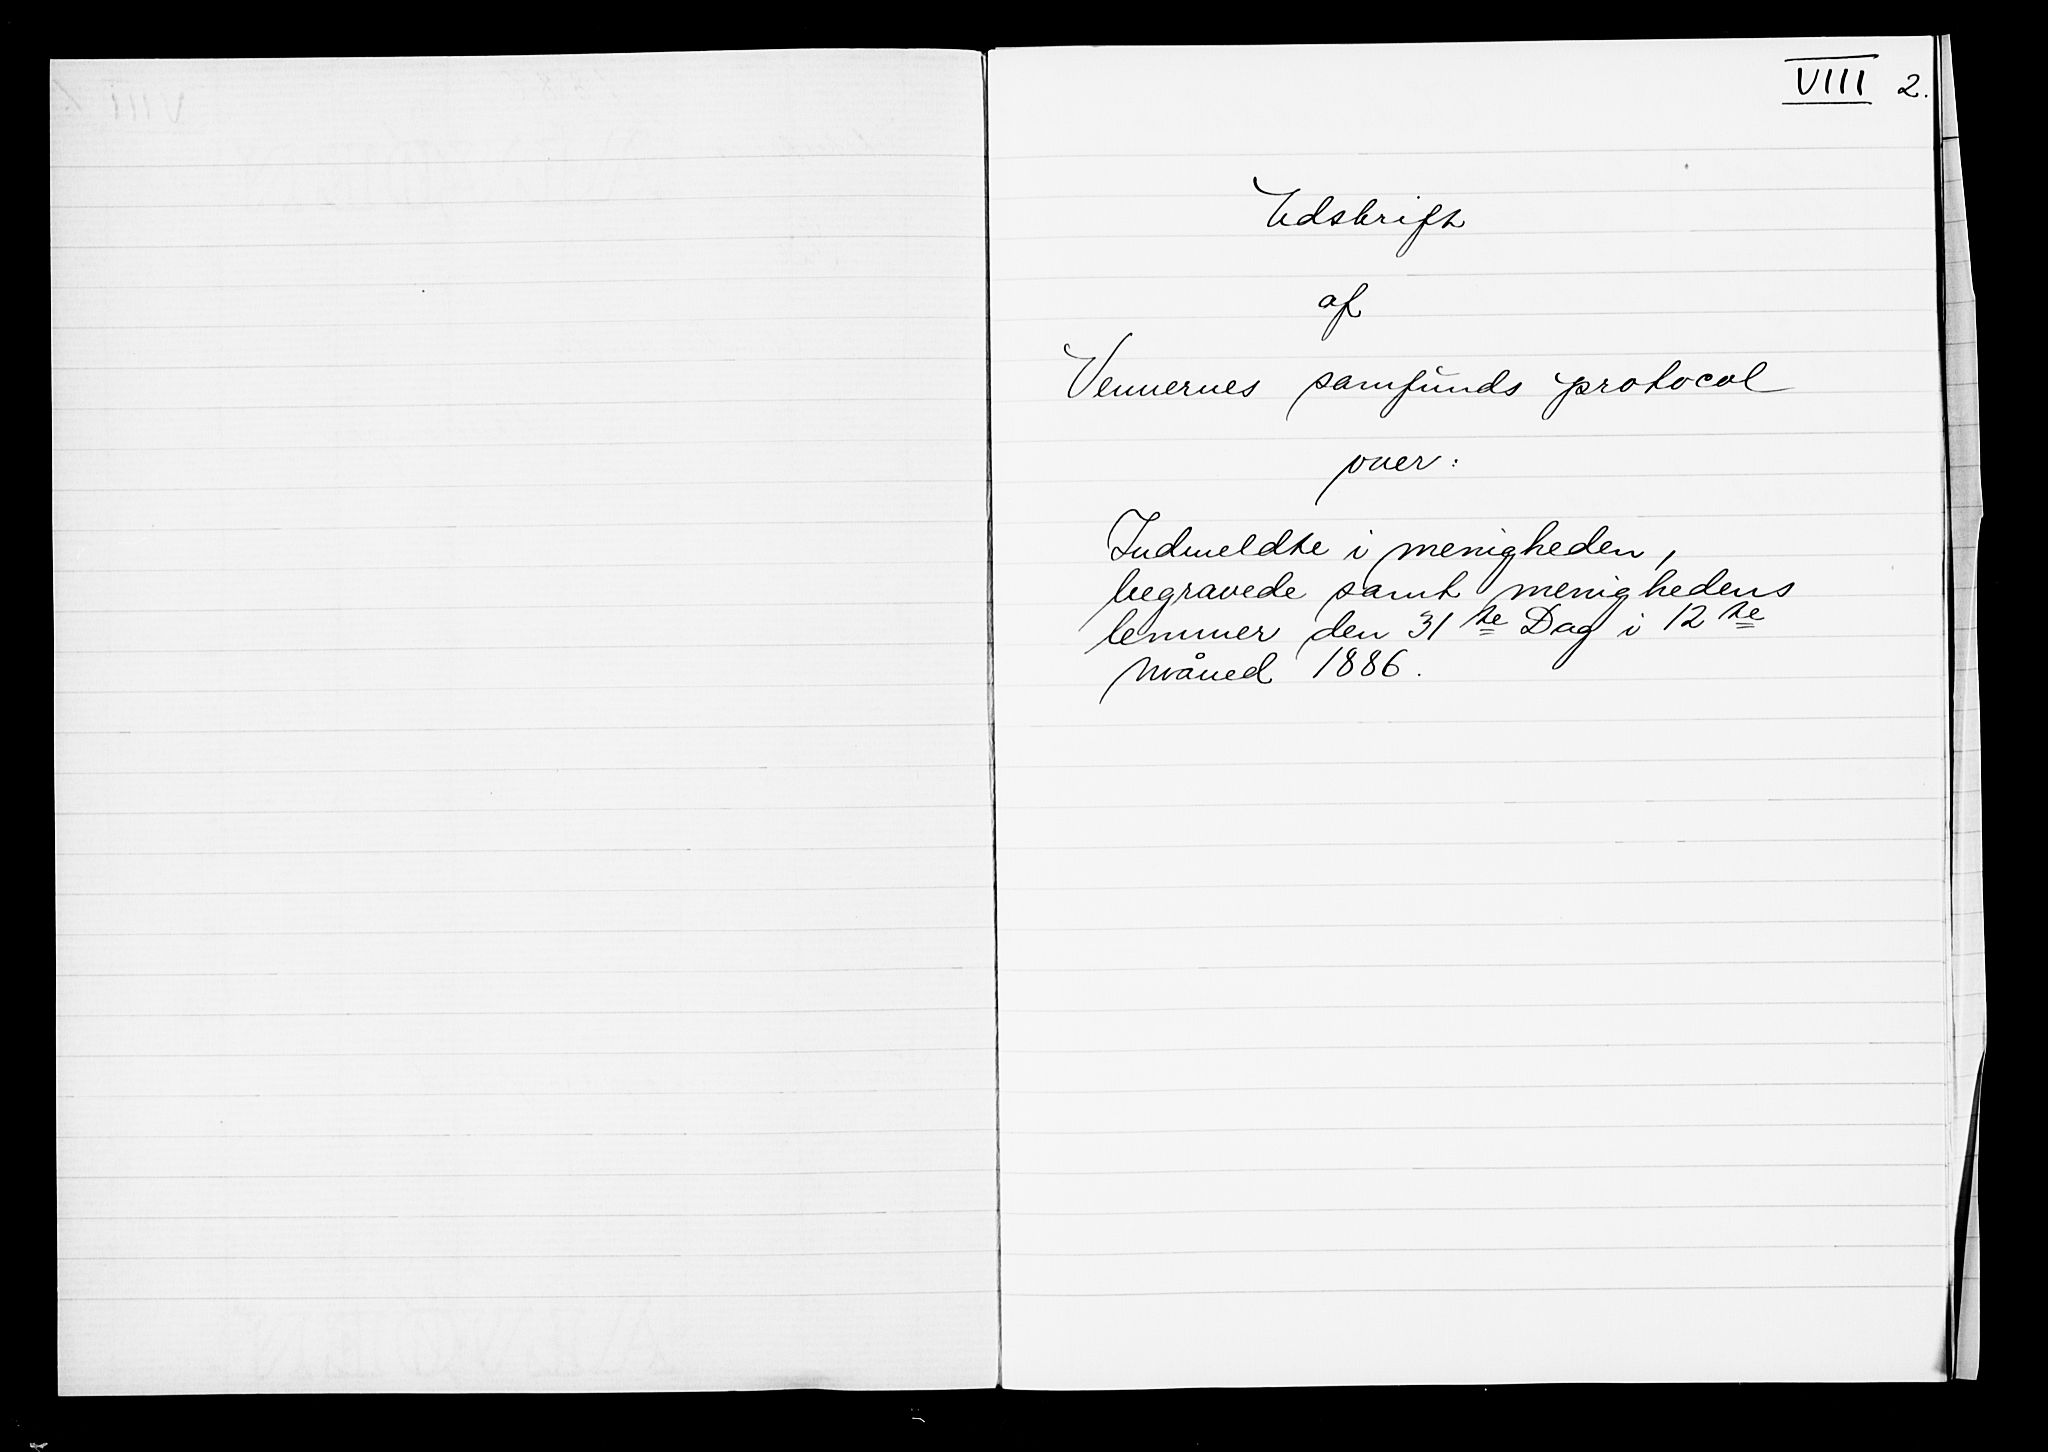 VIII 2.
Udskrift
af
Vennernes samfunds protocol
over:
Indmeldte i menigheden,
begravede samt menighedens
lemmer den 31te Dag i 12te
måned 1886.